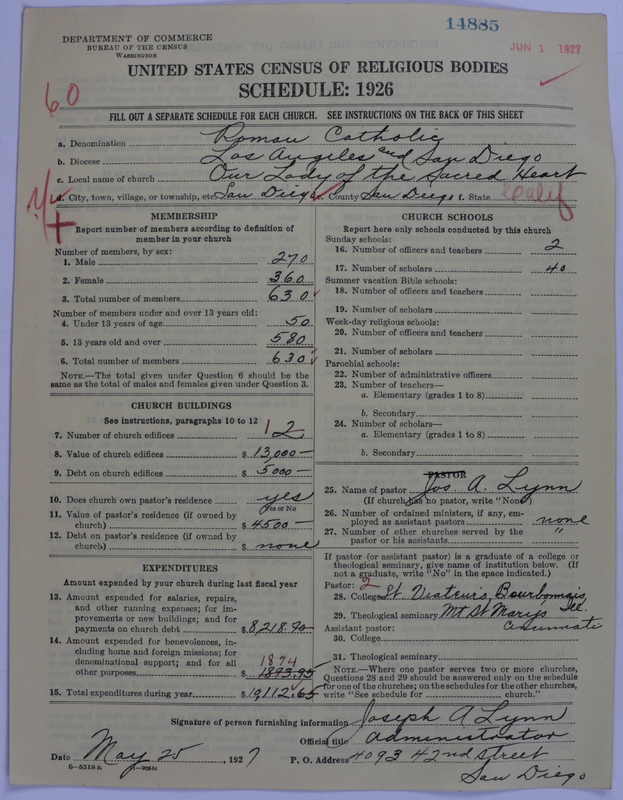 14885
JUN 1 1927
DEPARTMENT OF COMMERCE
BUREAU OF THE CENSUS
WASHINGTON
UNITED STATES CENSUS OF RELIGIOUS BODIES
SCHEDULE: 1926
60
FILL OUT A SEPARATE SCHEDULE FOR EACH CHURCH. SEE INSTRUCTIONS ON THE BACK OF THIS SHEET
a. Denomination Roman Catholic
b. Diocese Los Angeles and San Diego
c. Local name of church Our Lady of the Sacred Heart
d. City, town, village, or township, etc San Diego e. County San Diego f. State Calif
MEMBERSHIP
Report number of members according to definition of
member in your church
Number of members, by sex:
1. Male 270
2. Female 360
3. Total number of members 630
Number of members under and over 13 years old:
4. Under 13 years of age 50
5. 13 years old and over 580
6. Total number of members 630
NOTE.—The total given under Question 6 should be the
same as the total of males and females given under Question 3.
CHURCH BUILDINGS
See instructions, paragraphs 10 to 12
7. Number of church edifices 1 2
8. Value of church edifices $ 13,000—
9. Debt on church edifices $ 5000—
10. Does church own pastor's residence yes
Yes or No
11. Value of pastor's residence (if owned by
church) $ 4500—
12. Debt on pastor's residence (if owned by
church) $ none
EXPENDITURES
Amount expended by your church during last fiscal year
13. Amount expended for salaries, repairs,
and other running expenses; for im-
provements or new buildings; and for
payments on church debt $ 8218.70
14. Amount expended for benevolences, in-
cluding home and foreign missions; for
denominational support; and for all
other purposes $ 1893.95
1894
15. Total expenditures during year $ 19112.65
CHURCH SCHOOLS
Report here only schools conducted by this church
Sunday schools:
16. Number of officers and teachers 2
17. Number of scholars 40
Summer vacation Bible schools:
18. Number of officers and teachers
19. Number of scholars
Week-day religious schools:
20. Number of officers and teachers
21. Number of scholars
Parochial schools:
22. Number of administrative officers
23. Number of teachers—
a. Elementary (grades 1 to 8)
b. Secondary
24. Number of scholars—
a. Elementary (grades 1 to 8)
b. Secondary
PASTOR
25. Name of pastor Jos A. Lynn
(If church has no pastor, write "None")
26. Number of ordained ministers, if any, em-
ployed as assistant pastors none
27. Number of other churches served by the
pastor or his assistants "
If pastor (or assistant pastor) is a graduate of a college or
theological seminary, give name of institution below. (If
not a graduate, write "No" in the space indicated.)
Pastor: 2
28. College St. Viateurs, Bourbonnais, Ill.
29. Theological seminary Mt St Marys Cincinnati
Assistant pastor:
30. College
31. Theological seminary
NOTE.—Where one pastor serves two or more churches,
Questions 28 and 29 should be answered only on the schedule
for one of the churches; on the schedules for the other churches,
write "See schedule for church."
Signature of person furnishing information Joseph A Lynn
Official title administrator
Date May 25, 1927 P. O. Address 4093 42nd Street
San Diego